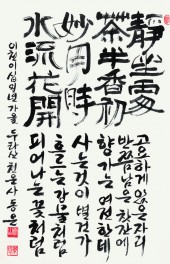 靜坐處
茶半香初
妙用時
水流花開
고요하게 앉은 자리
반쯤 남은 찻잔에
향기는 여전한데
사는 것이 별건가
흐르는 강물처럼
피어나는 꽃처럼
가을 두타산 천은사 동은